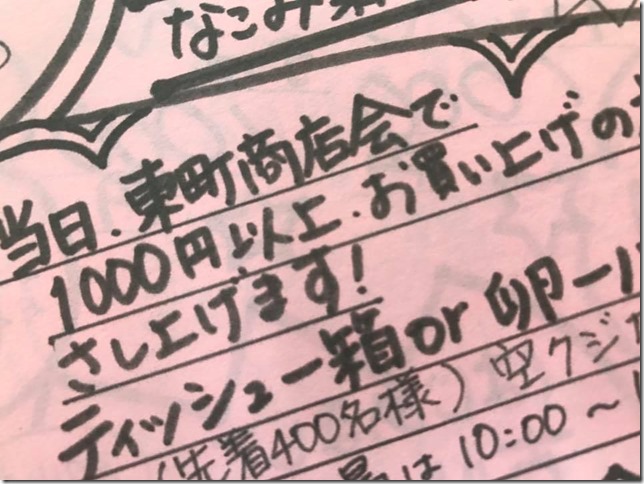 なごみ
当日、東町商店会で
1000円以上、お買い上げの
さし上げます!
ティッシュ一箱 or 卵一
(先着400名様) 空クジ
は 10:00〜